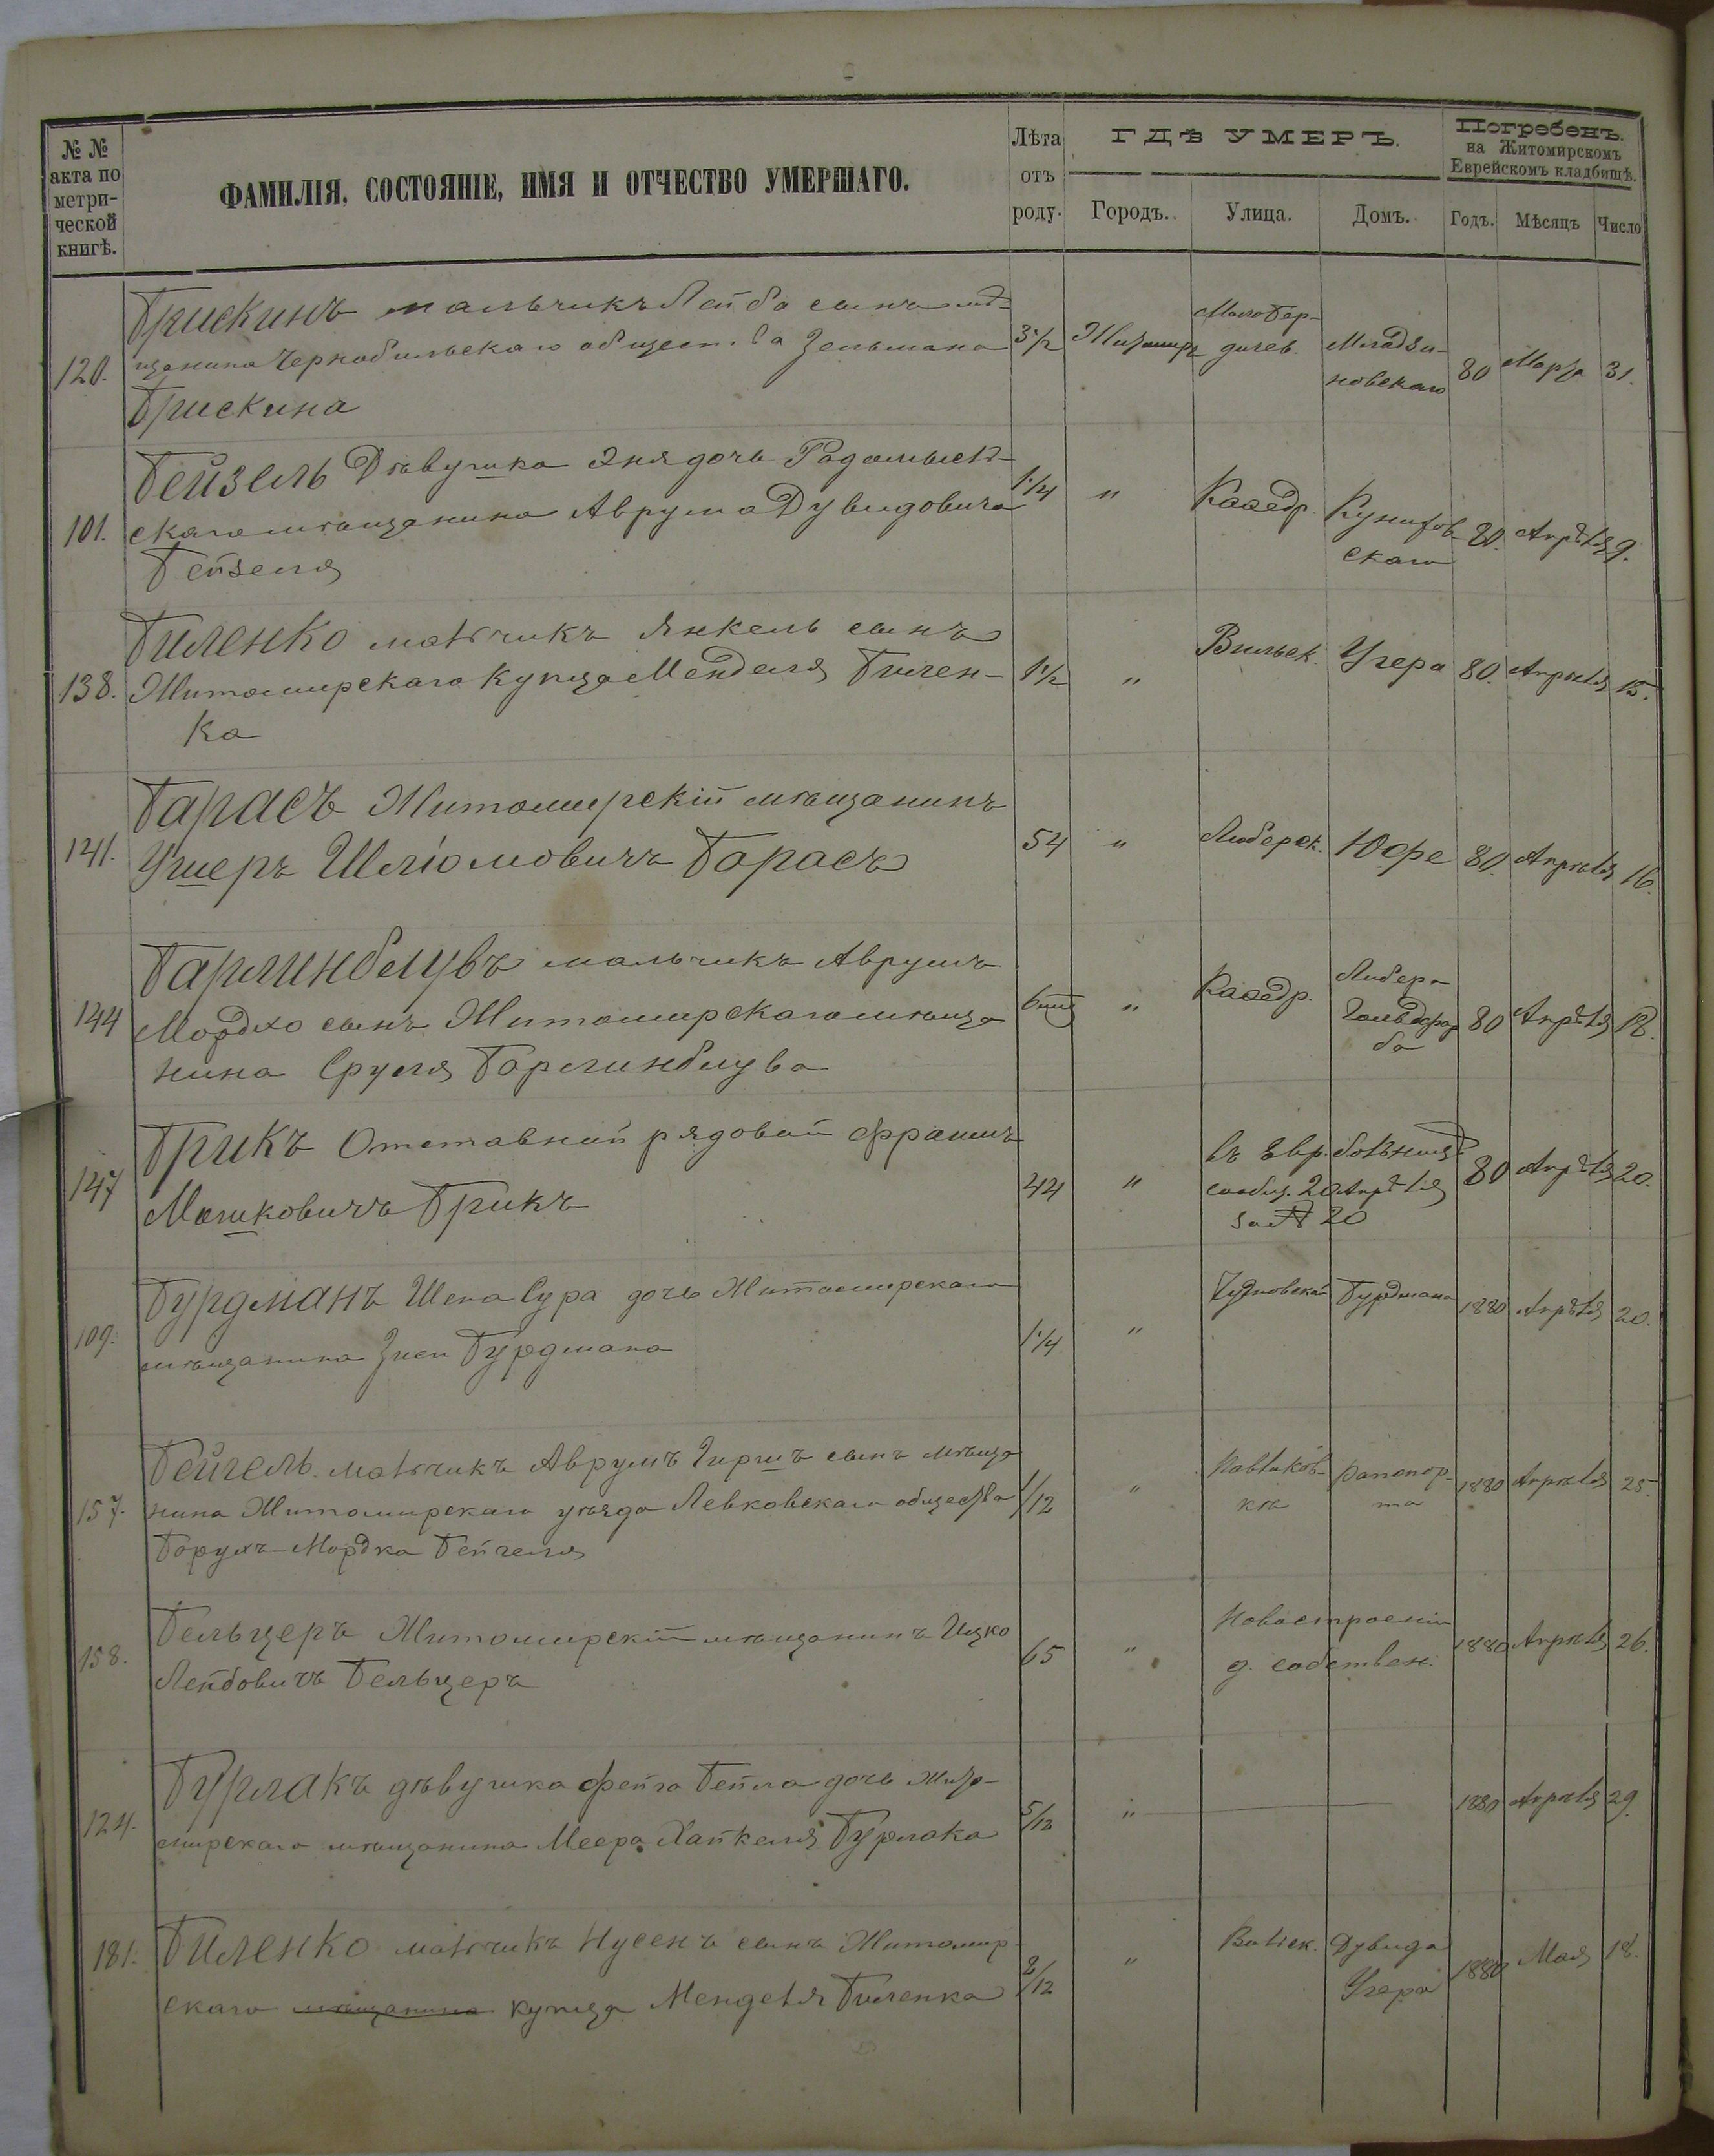 № №
акта по
метри-
ческой
книгѣ.
ФАМИЛІЯ, СОСТОЯНІЕ, ИМЯ И ОТЧЕСТВО УМЕРШАГО.
Лѣта
отъ
роду.
ГДѢ УМЕРЪ.
Городъ.
Улица.
Домъ.
Погребенъ.
на Житомирскомъ
Еврейскомъ кладбищѣ.
Годъ.
Мѣсяцъ
Число
120.
Брискинъ мальчикъ Лейба сынъ мѣ-
щанина Чернобильскаго общества Зельмана
Брискина
3½ Житомиръ
Малобер-
дичев.
новскаго
80 Марта 31.
101.
Бейзель Дѣвушка Эня дочь Радомысль-
скаго мѣщанина Аврума Дувидовича
Бейзеля
1¼ " Каѳедр.
скаго
80. Апрѣля 9.
138.
Биленко мальчикъ Янкель сынъ
Житомирскаго купца Менделя Билен-
ка
1½ " Вильск. Угера 80. Апрѣля 15.
141.
Барасъ Житомирскій мѣщанинъ
Ушеръ Шліомовичъ Барасъ
54 " Либерск. Юфе 80. Апрѣля 16.
144
Барлинблувъ мальчикъ Аврумъ
Мордхо сынъ Житомирскаго мѣща
нина Сруля Барлинблува
" Каѳедр.
Либера
Гольдфар
ба
80 Апрѣля 18.
147
Брикъ Отставной рядовой Фраимъ
Мошковичъ Брикъ
44 "
въ Евр. больницѣ
сообщ. 20 Апрѣля
за № 20
80 Апрѣля 20.
109.
Бурдманъ Шена Сура дочь Житомирскаго
мѣщанина Зиси Бурдмана
1¼ " Чудновской Бурдмана 1880 Апрѣля 20.
157.
Бейгель. мальчикъ Аврумъ Гиршъ сынъ мѣща
нина Житомирскаго уѣзда Левковскаго общества
Борухъ-Мордка Бейгеля
1/12 "
Павликов-
кѣ
Рапопор-
та
1880 Апрѣля 25.
158.
Бельцеръ Житомирскій мѣщанинъ Ицко
Лейбовичъ Бельцеръ
65 "
Новостроеніи
д. собствен.
1880 Апрѣля 26.
124.
Бурлакъ дѣвушка Фейга Бейла дочь Жито-
мирскаго мѣщанина Меера Хайкеля Бурлака
5/12 " 1880 Апрѣля 29.
181.
Биленко мальчикъ Нусенъ сынъ Житомир-
скаго мѣщанина купца Менделя Биленка
2/12 " Вильск.
Дувида
Угера
1880 Мая 18.